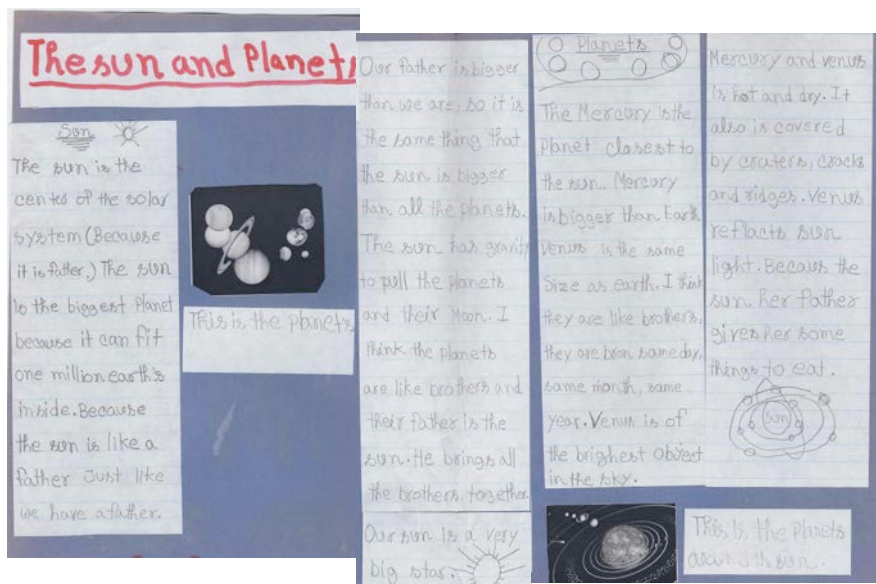 The sun and Planets
Sun
The sun is the
center of the solar
system (Because
it is father.) The sun
is the biggest Planet
because it can fit
one million earth's
inside. Because
the sun is like a
father Just like
we have a father.
This is the planets
Our father is bigger
than we are, so it is
the same thing that
the sun is bigger
than all the planets.
The sun has gravity
to pull the planets
and their Moon. I
think the planets
are like brothers and
their father is the
sun. He brings all
the brothers together
Our sun is a very
big star.
Planets
The Mercury is the
Planet closest to
the sun. Mercury
is bigger than Earth
Venus is the same
Size as earth. I think
they are like brothers,
they are bron same day,
same month, same
year. Venus is of
the brighest Object
in the sky.
Mercury and venus
is hot and dry. It
also is covered
by craters, cracks
and ridges. Venus
reflacts sun
light. Becaus the
sun her father
gives her some
things to eat.
sun
This is the Planets
around sun.